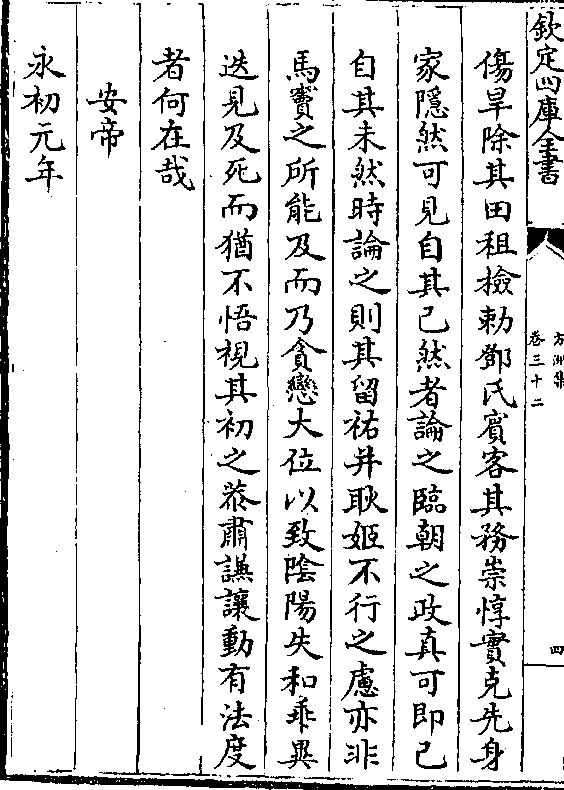 欽定四庫全書
方洲集
卷三十二
四
傷旱除其田租檢勅鄧氏賓客其務崇惇實克先身
家隱然可見自其已然者論之臨朝之政真可即已
自其未然時論之則其留祐并耿姬不行之慮亦非
馬竇之所能及而乃貪戀大位以致隂陽失和乖異
迭見及死而猶不悟視其初之恭肅謙讓動有法度
者何在哉
安帝
永初元年